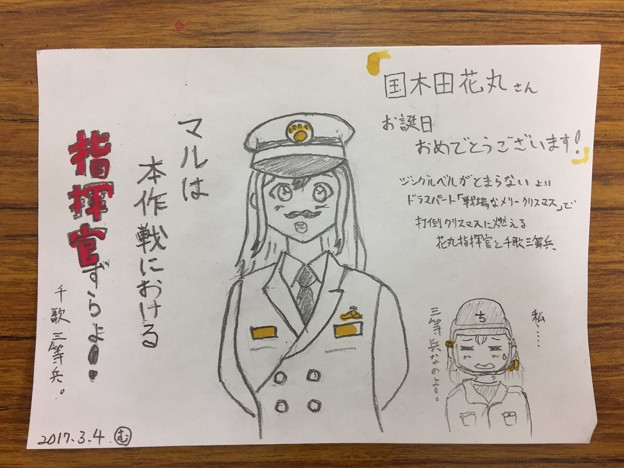 国木田花丸さん
お誕生日
おめでとうございます!
ジングルベルがとまらないより
ドラマパート「戦場なメリークリスマス」で
打倒クリスマスに燃える
花丸指揮官と千歌三等兵
マルは
本作戦における
指揮官ずらよ!
千歌三等兵。
私……
三等兵なのよ。。
ち
2017.3.4 む